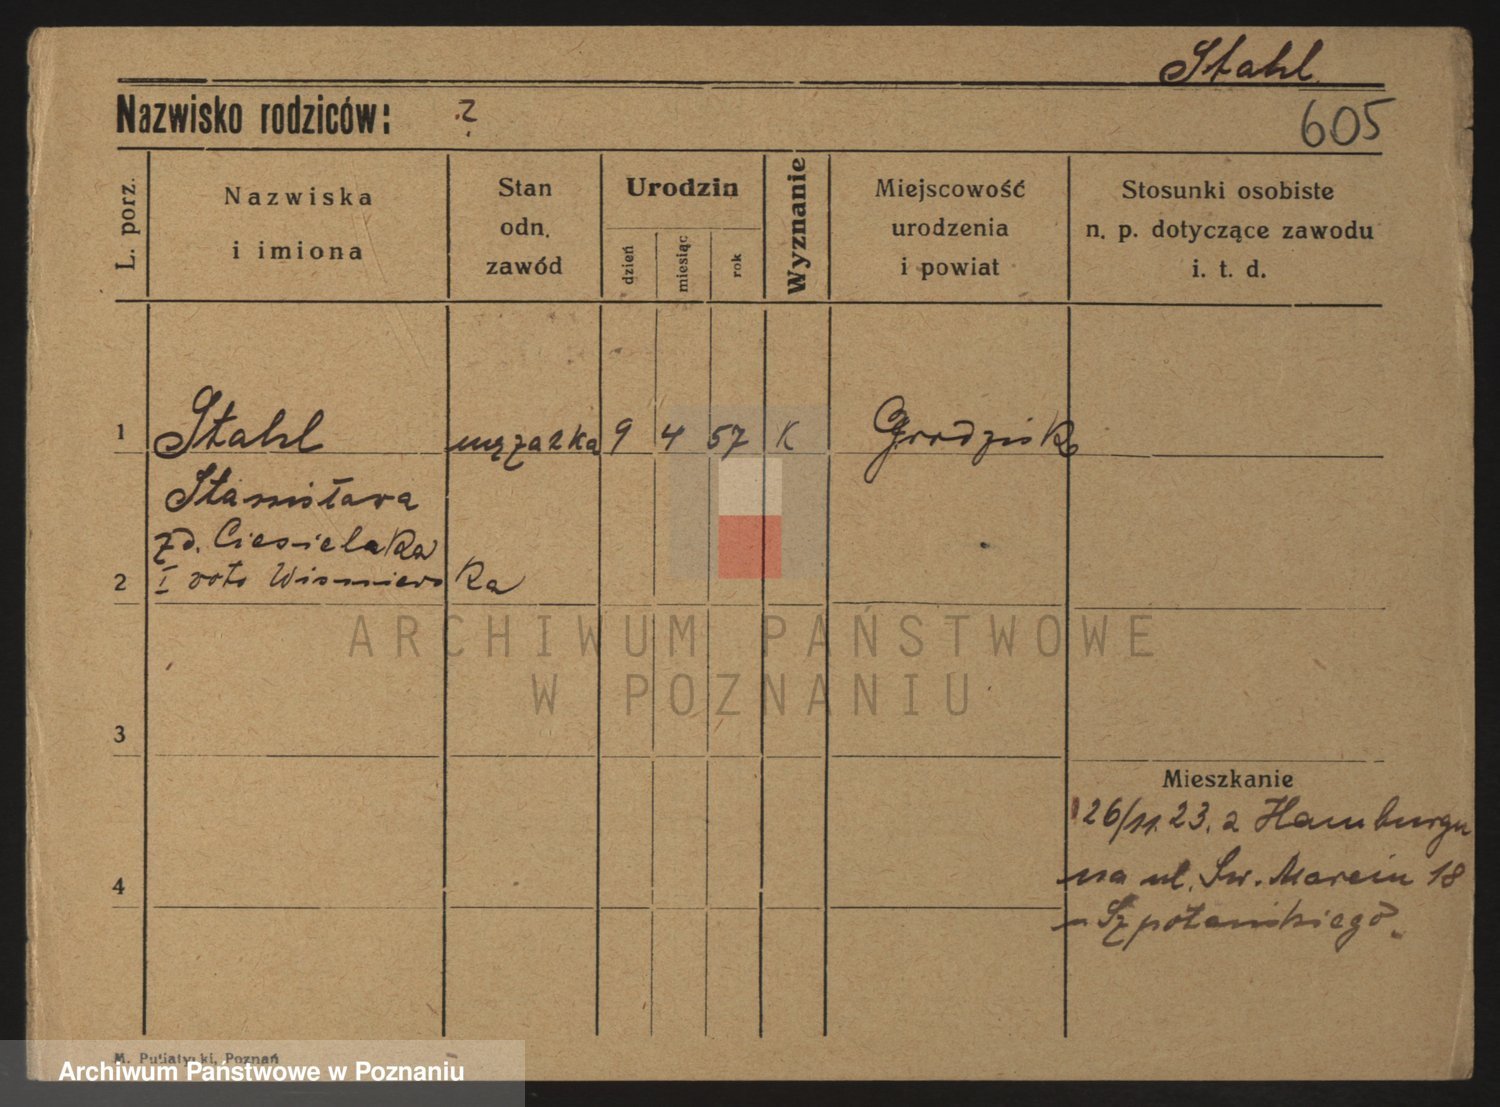 Stahl
Nazwisko rodziców: ?
605
L. porz.
Nazwiska
i imiona
Stan
odn.
zawód
Urodzin
dzień
miesiąc
rok
Wyznanie
Miejscowość
urodzenia
i powiat
Stosunki osobiste
n. p. dotyczące zawodu
i. t. d.
1 Stahl mężatka 9 4 57 K Grodzisk
Stanisława
zd. Ciesielska
2 I voto Wiśniewska
ARCHIWUM PAŃSTWOWE
W POZNANIU
3
Mieszkanie
26/11.23. z Hamburga
4 na ul. Św. Marcin 18
u Szpotańskiego.
M. Putiatycki, Poznań
Archiwum Państwowe w Poznaniu